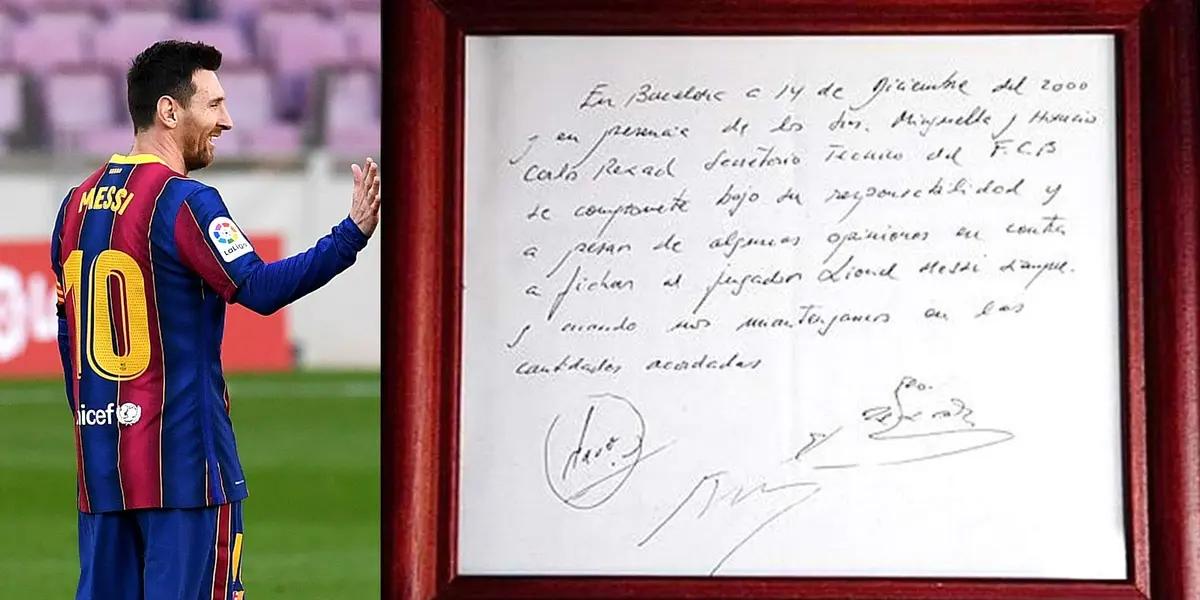 MESSI
10
unicef
LaLiga
En Barcelona a 14 de Diciembre del 2000
y en presencia de los Srs. Minguella y Horacio
Carlos Rexach Secretario Tecnico del F.C.B
se compromete bajo su responsabilidad y
a pesar de algunas opiniones en contra
a fichar al jugador Lionel Messi siempre
y cuando nos mantengamos en las
cantidades acordadas